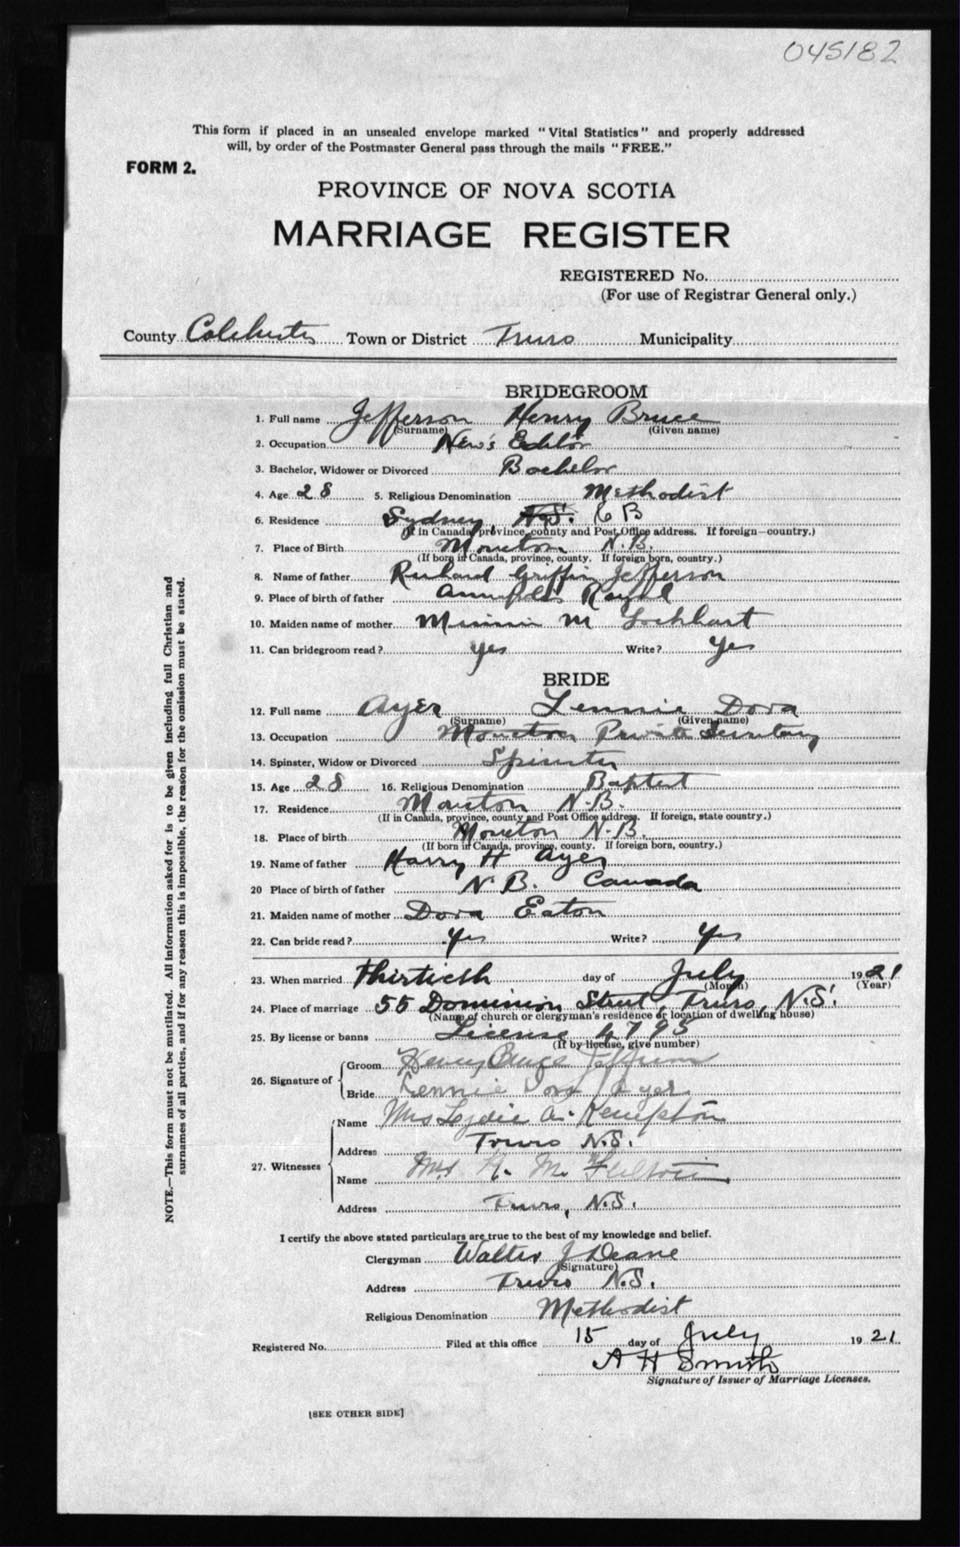 045182
This form if placed in an unsealed envelope marked "Vital Statistics" and properly addressed
will, by order of the Postmaster General pass through the mails "FREE."
FORM 2.
PROVINCE OF NOVA SCOTIA
MARRIAGE REGISTER
REGISTERED No.
(For use of Registrar General only.)
County Colchester Town or District Truro Municipality
BRIDEGROOM
1. Full name Jefferson Henry Bruce
(Surname) (Given name)
2. Occupation New's Editor
3. Bachelor, Widower or Divorced Bachelor
4. Age 28 5. Religious Denomination Methodist
6. Residence Sydney, N.S. C B
(If in Canada, province, county and Post Office address. If foreign—country.)
7. Place of Birth Moncton N.B.
(If born in Canada, province, county. If foreign born, country.)
8. Name of father Richard Griffin Jefferson
9. Place of birth of father Annapolis Royal
10. Maiden name of mother Minnie M Lockhart
11. Can bridegroom read? yes Write? Yes
BRIDE
12. Full name Ayer Lennie Dora
(Surname) (Given name)
13. Occupation Moncton Private Secretary
14. Spinster, Widow or Divorced Spinster
15. Age 28 16. Religious Denomination Baptist
17. Residence Moncton N.B.
(If in Canada, province, county and Post Office address. If foreign, state country.)
18. Place of birth Moncton N.B.
(If born in Canada, province, county. If foreign born, country.)
19. Name of father Harry H Ayer
20 Place of birth of father N B. Canada
21. Maiden name of mother Dora Eaton
22. Can bride read? Yes Write? Yes
23. When married Thirtieth day of July 1921
(Month) (Year)
24. Place of marriage 55 Dominion Street, Truro, N.S.
(Name of church or clergyman's residence or location of dwelling house)
25. By license or banns License 4795
(If by license, give number)
26. Signature of Groom Henry Bruce Jefferson
Bride Lennie Dora Ayer
27. Witnesses Name Mrs Lydia A. Kempton
Address Truro N.S.
Name Mrs H. M. Fulton
Address Truro, N.S.
I certify the above stated particulars are true to the best of my knowledge and belief.
Clergyman Walter J Deane
(Signature)
Address Truro N.S.
Religious Denomination Methodist
Registered No. Filed at this office 15 day of July 1921
A H Smith
Signature of Issuer of Marriage Licenses.
[SEE OTHER SIDE]
NOTE.—This form must not be mutilated. All information asked for is to be given including full Christian and
surnames of all parties, and if for any reason this is impossible, the reason for the omission must be stated.